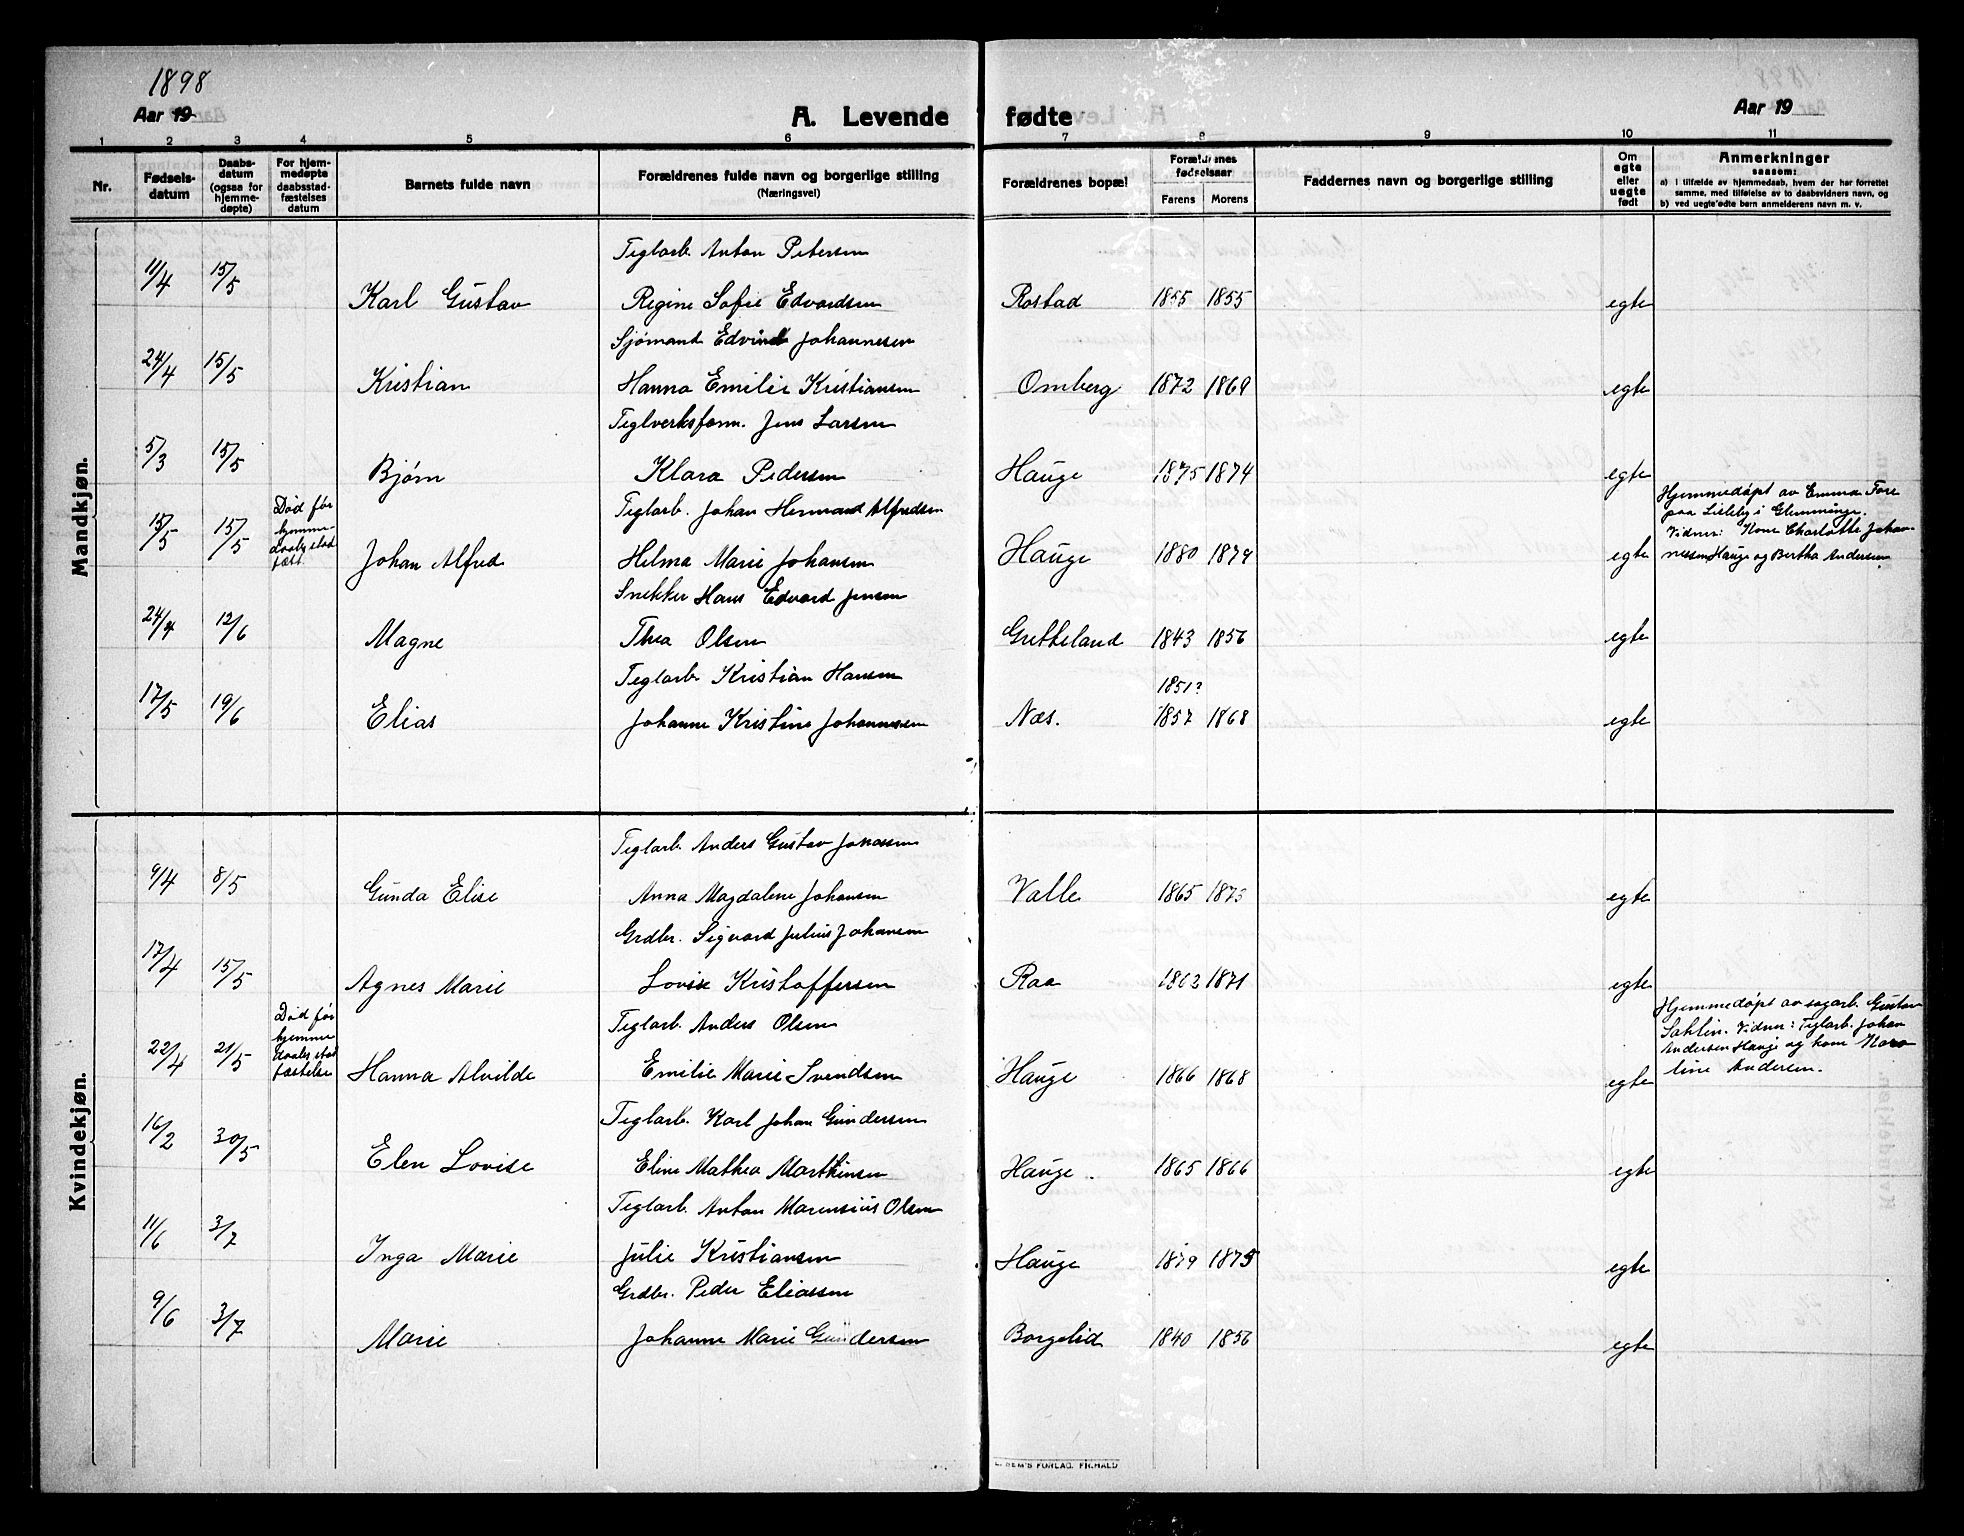 1898
Aar 19
A. Levende fødte
Aar 19
1 2 3 4 5 6 7 8 9 10 11
Nr.
Fødselsdatum
Daabsdatum (ogsaa for hjemmedøpte)
For hjemmedøpte daabsstadfæstelses datum
Barnets fulde navn
Forældrenes fulde navn og borgerlige stilling
(Næringsvei)
Forældrenes bopæl
Forældrenes fødselsaar
Farens Morens
Faddernes navn og borgerlige stilling
Om egte eller uegte født
Anmerkninger
saasom:
a) i tilfælde av hjemmedaab, hvem der har forrettet
samme, med tilføielse av to daabsvidners navn, og
b) ved uegte fødte børn anmelderens navn m. v.
Mandkjøn.
Teglarb. Anton Petersen
11/4 15/5 Karl Gustav Regine Sofie Edvardsen Rostad 1855 1855 egte
Sjømand Edvind Johannesen
24/4 15/5 Kristian Hanna Emilie Kristiansen Omberg 1872 1869 egte
Teglverksform. Jens Larsen
5/3 15/5 Bjørn Klara Pedersen Hauge 1875 1874 egte
Teglarb. Johan Herman Alfredsen
15/5 15/5 Død før hjemmedaab stadfæst. Johan Alfred Helma Marie Johansen Hauge 1880 1879 egte
Hjemmedøpt av Emma Fore
paa Lisleby i Glemminge.
Vidner: Kone Charlotte Johannessen Hauge og Bertha Andersen.
Snekker Hans Edvard Jensen
24/4 12/6 Magne Thea Olsen Gretteland 1843 1856 egte
Teglarb. Kristian Hansen
1851?
17/5 19/6 Elias Johanne Kristine Johannesen Næs. 1857 1868 egte
Kvindekjøn.
Teglarb. Anders Gustav Jonassen
9/4 8/5 Gunda Elise Anna Magdalene Johansen Valle 1865 1873 egte
Grdbr. Sigvard Julius Johansen
17/4 15/5 Agnes Marie Lovise Kristoffersen Raa 1862 1871 egte
Teglarb. Anders Olsen
22/4 21/5 Død før hjemmedaabs stadfæstelse Hanna Alvilde Emilie Marie Svendsen Hauge 1866 1868 egte
Hjemmedøpt av sagarb. Gustav
Sahlin. Vidner: Teglarb. Johan
Andersen Hauge og kone Karoline Andersen.
Teglarb. Karl Johan Gundersen
16/2 30/5 Elen Lovise Eline Mathea Marthinsen Hauge. 1865 1866 egte
Teglarb. Anton Marensius Olsen
11/6 3/7 Inga Marie Julie Kristiansen Hauge 1879 1875 egte
Grdbr. Peder Eliassen
9/6 3/7 Marie Johanne Marie Gundersen Borgelid 1840 1856 egte
SEM'S FORLAG. FR.HALD